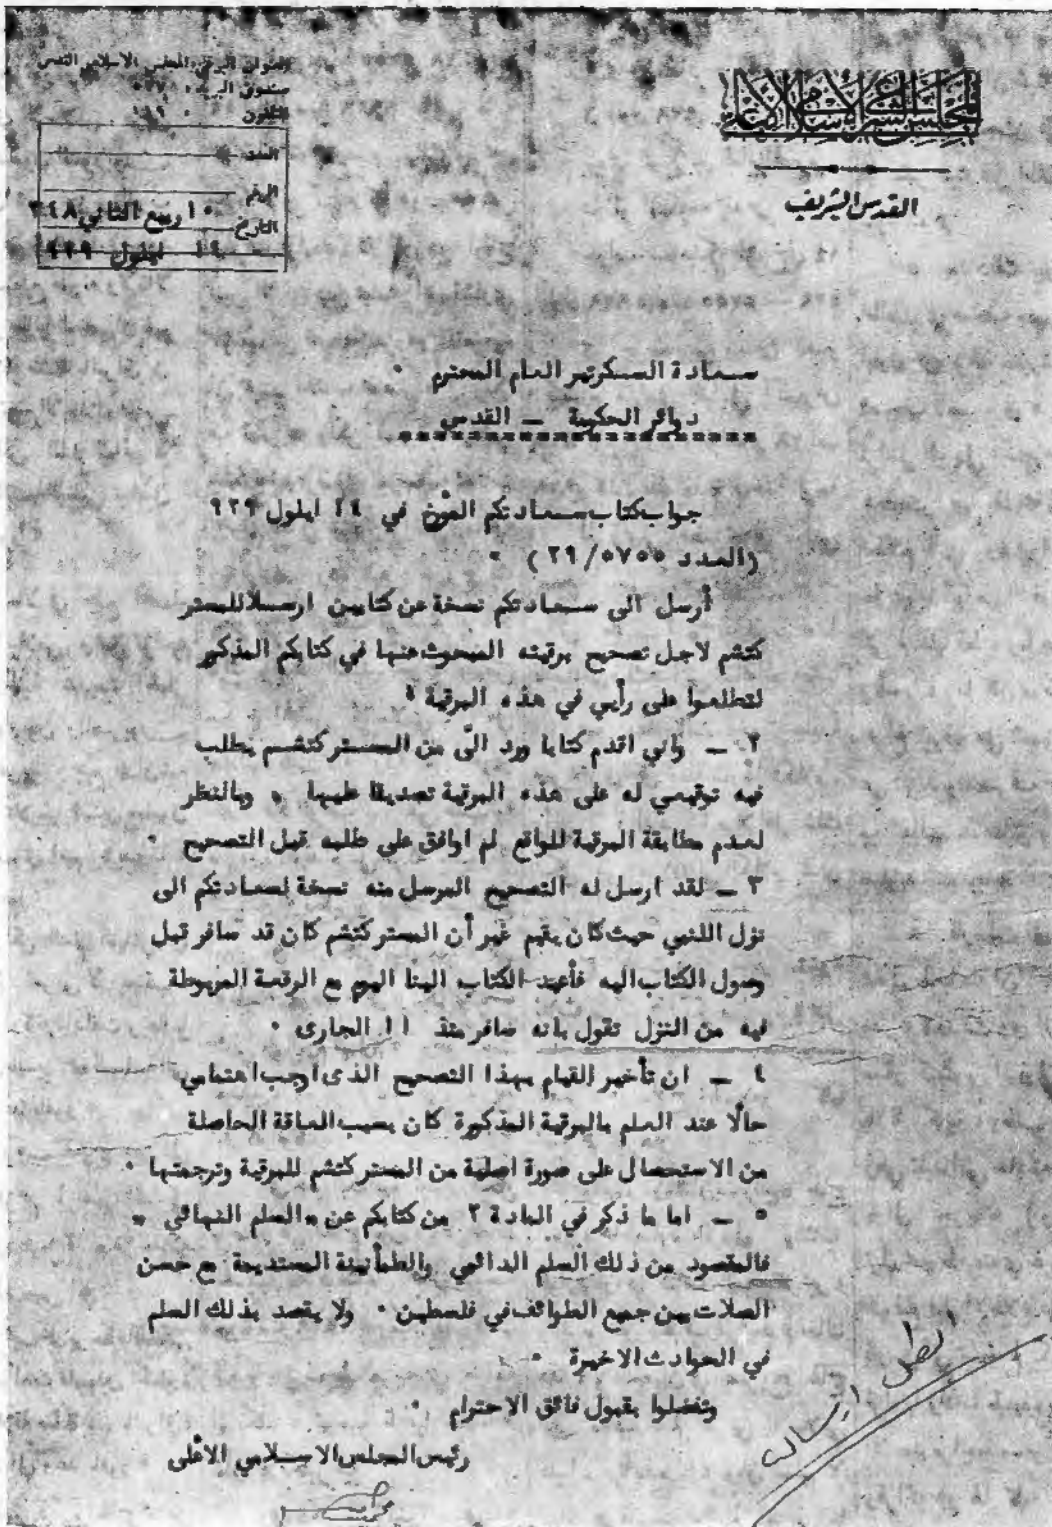 المجلس الشرعي الإسلامي الأعلى
القدس الشريف
العنوان البرقي: المجلس الاسلامي القدس
صندوق البريد
التلفون
العدد
الرقم
التاريخ ١٠ ربيع الثاني ٣٤٨
ايلول ٩٢٩
سعادة السكرتير العام المحترم ٠
دوائر الحكومة - القدس
جواب كتاب سعادتكم المؤرخ في ١٤ ايلول ٩٢٩
(العدد ٥٧٥٥/٢٩) ٠
أرسل الى سعادتكم نسخة عن كتابين ارسلا للمستر
كتشم لاجل تصحيح برقيته المبحوث عنها في كتابكم المذكور
لتطلعوا على رأيي في هذه البرقية ٠
٢ - واني اقدم كتابا ورد الىّ من المستر كتشم يطلب
فيه توقيعي له على هذه البرقية تصديقا عليها ٠ وبالنظر
لعدم مطابقة البرقية للواقع لم اوافق على طلبه قبل التصحيح ٠
٣ - لقد ارسل له التصحيح المرسل منه نسخة لسعادتكم الى
نزل اللنبي حيث كان يقيم غير أن المستر كتشم كان قد سافر قبل
وصول الكتاب اليه فأعيد الكتاب الينا اليوم مع الرقعة المربوطة
فيه من النزل تقول بانه سافر منذ ١١ الجارى ٠
٤ - ان تأخير القيام بهذا التصحيح الذى اوجب اهتمامي
حالًا عند العلم بالبرقية المذكورة كان بسبب العاقة الحاصلة
من الاستحصال على صورة اصلية من المستر كتشم للبرقية وترجمتها ٠
٥ - اما ما ذكر في المادة ٢ من كتابكم عن "السلم النهائي "
فالمقصود من ذلك السلم الدائمي والطمأنينة المستديمة مع حسن
الصلات بين جميع الطوائف في فلسطين ٠ ولا يقصد بذلك السلم
في الحوادث الاخيرة ٠
وتفضلوا بقبول فائق الاحترام ٠
رئيس المجلس الاسلامي الاعلى